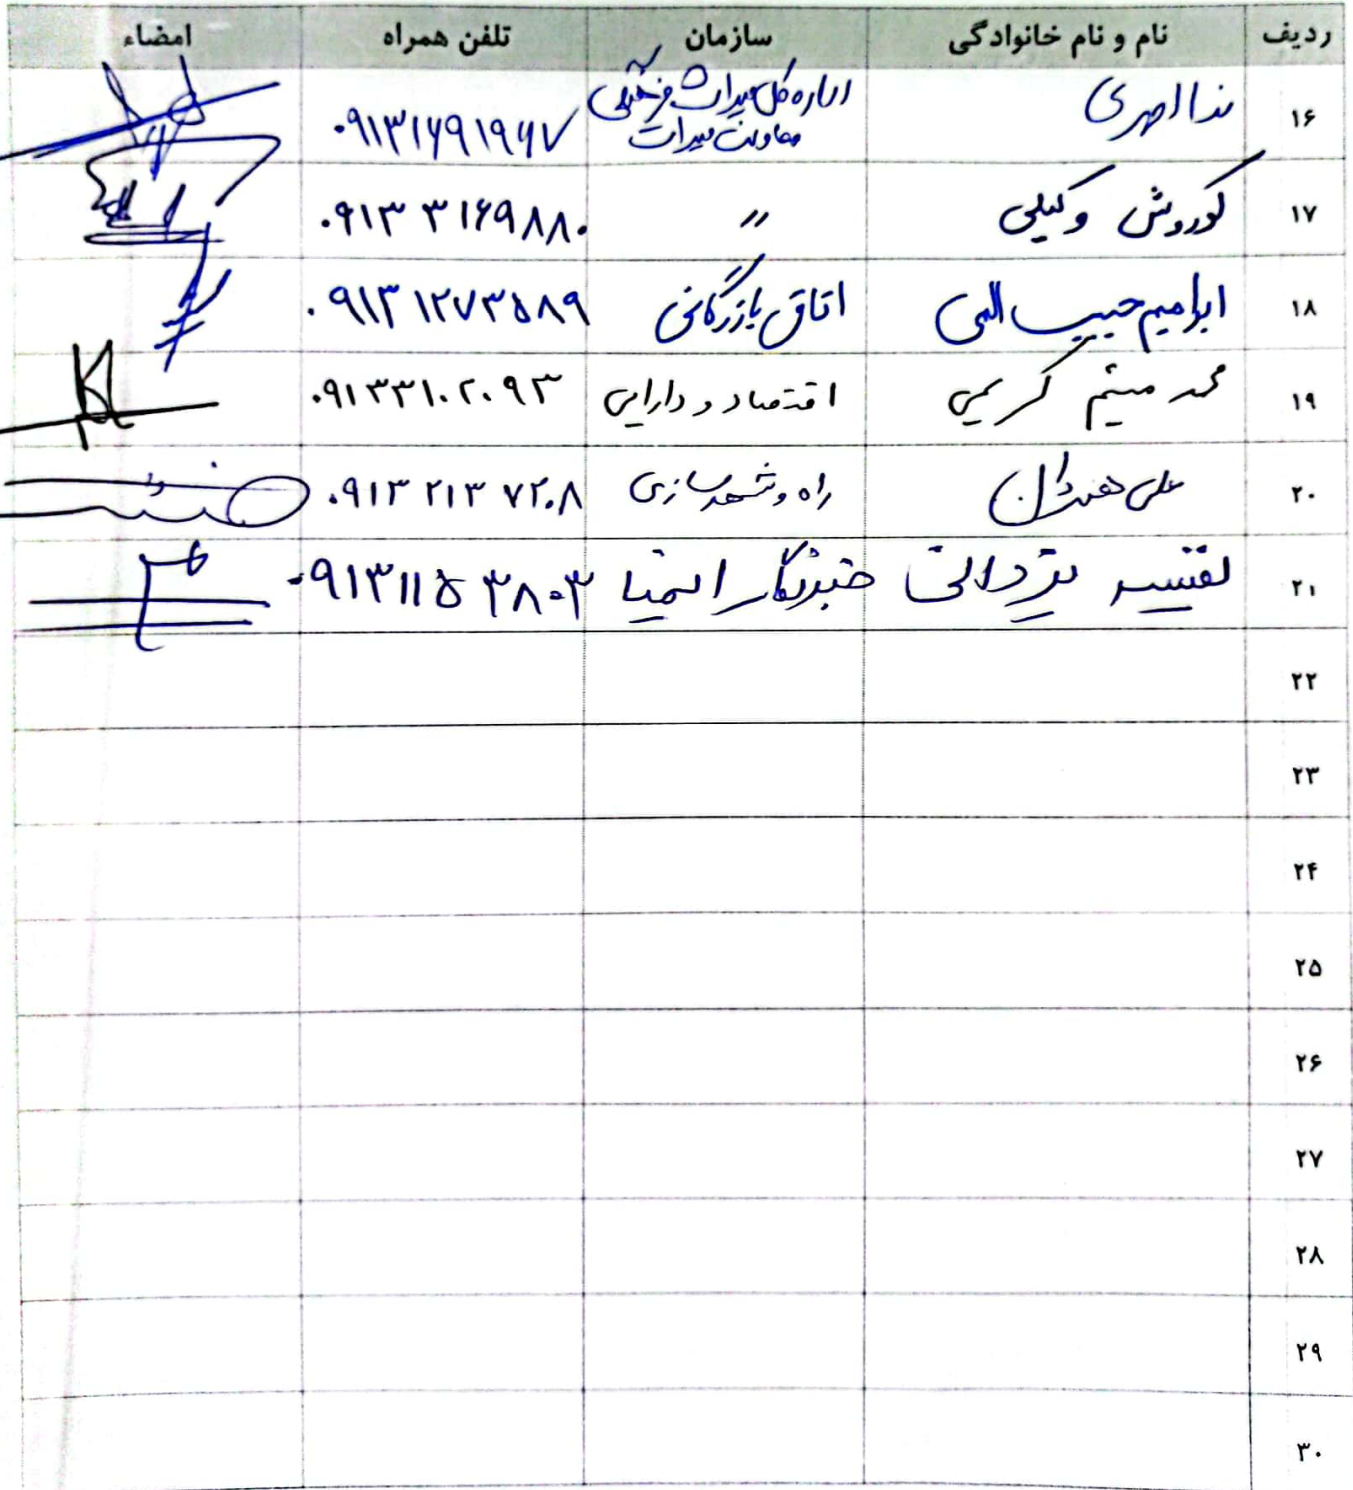 ردیف نام و نام خانوادگی سازمان تلفن همراه امضاء
۱۶ ندا احمدی اداره کل میراث فرهنگی
معاونت میراث ۰۹۱۳۱۶۹۱۹۶۷
۱۷ کوروش وکیلی 〃 ۰۹۱۳ ۳۱۶۹۸۸۰
۱۸ ابراهیم حبیب الهی اتاق بازرگانی ۰۹۱۳ ۱۲۷۳۵۸۹
۱۹ محمد میثم کریمی اقتصاد و دارایی ۰۹۱۳۳۱۰۲۰۹۳
۲۰ علی راه و شهرسازی ۰۹۱۳ ۲۱۳ ۷۲۰۸
۲۱ نفیسه یزدانی خبرنگار ایمنا ۰۹۱۳۱۱۵ ۳۸۰۳
۲۲
۲۳
۲۴
۲۵
۲۶
۲۷
۲۸
۲۹
۳۰